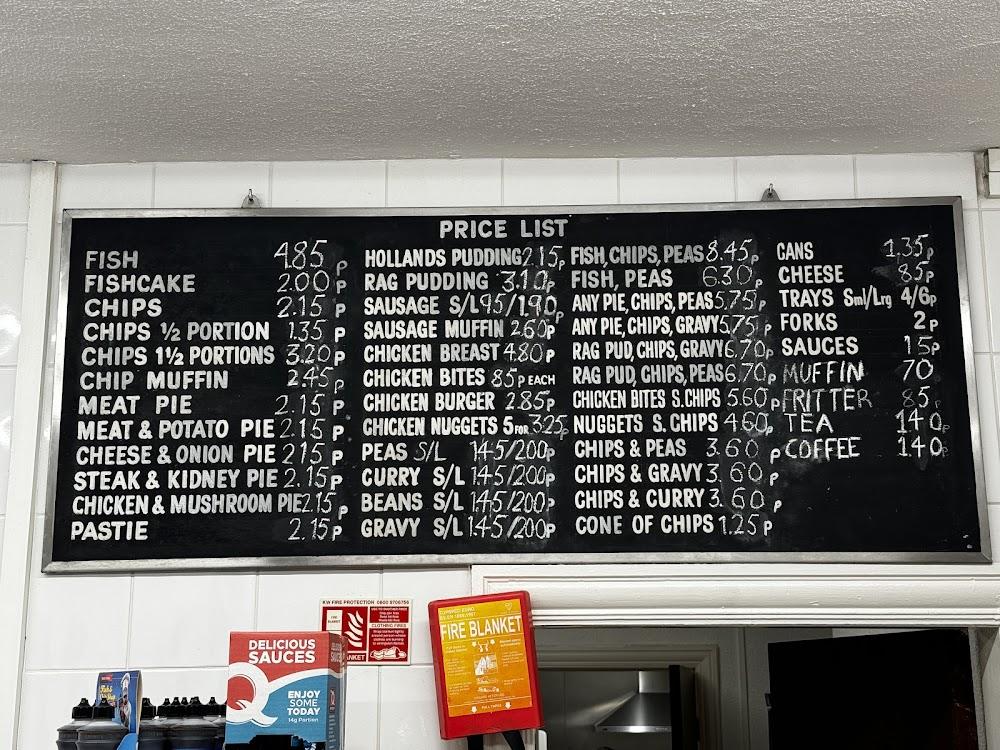 PRICE LIST
FISH 4.85 p
FISHCAKE 2.00 p
CHIPS 2.15 p
CHIPS ½ PORTION 1.35 p
CHIPS 1½ PORTIONS 3.20 p
CHIP MUFFIN 2.45 p
MEAT PIE 2.15 p
MEAT & POTATO PIE 2.15 p
CHEESE & ONION PIE 2.15 p
STEAK & KIDNEY PIE 2.15 p
CHICKEN & MUSHROOM PIE 2.15 p
PASTIE 2.15 p
HOLLANDS PUDDING 2.15 p
RAG PUDDING 3.10 p
SAUSAGE S/L 95/1.90 p
SAUSAGE MUFFIN 2.60 p
CHICKEN BREAST 4.80 p
CHICKEN BITES 85 P EACH
CHICKEN BURGER 2.85 p
CHICKEN NUGGETS 5 FOR 3.25 p
PEAS S/L 1.45/200 p
CURRY S/L 1.45/200 p
BEANS S/L 1.45/200 p
GRAVY S/L 1.45/200 p
FISH, CHIPS, PEAS 8.45 p
FISH, PEAS 6.30 p
ANY PIE, CHIPS, PEAS 5.75 p
ANY PIE, CHIPS, GRAVY 5.75 p
RAG PUD, CHIPS, GRAVY 6.70 p
RAG PUD, CHIPS, PEAS 6.70 p
CHICKEN BITES S.CHIPS 5.60 p
NUGGETS S. CHIPS 4.60 p
CHIPS & PEAS 3.60 p
CHIPS & GRAVY 3.60 p
CHIPS & CURRY 3.60 p
CONE OF CHIPS 1.25 p
CANS 1.35 p
CHEESE 85 p
TRAYS Sml/Lrg 4/6p
FORKS 2p
SAUCES 15p
MUFFIN 70
FRITTER 85 p
TEA 140 p
COFFEE 140 p
KW FIRE PROTECTION 0800 9706756
FIRE BLANKET
CLOTHING FIRES
DELICIOUS
SAUCES
Q
ENJOY
SOME
TODAY
14g Portion